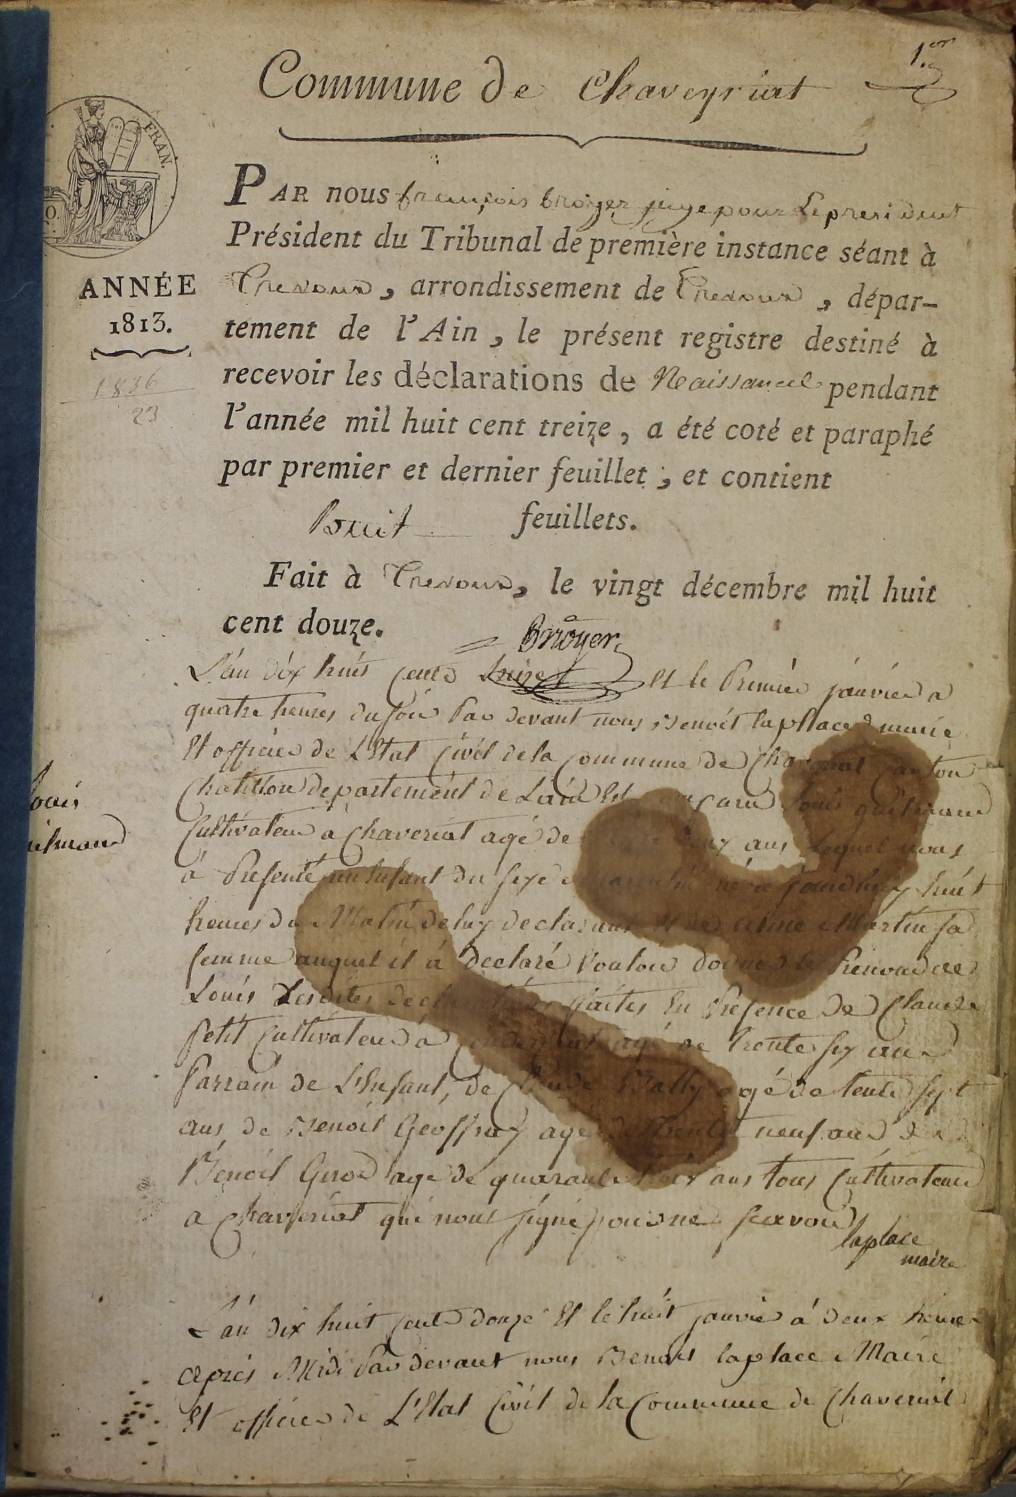 1.er
Commune de Chaveyriat
FRAN.
ANNÉE
1813.
1836
23
PAR nous françois broyer juge pour Le president
Président du Tribunal de première instance séant à
Trevoux, arrondissement de Trevoux, dépar-
tement de l'Ain, le présent registre destiné à
recevoir les déclarations de Naissances pendant
l'année mil huit cent treize, a été coté et paraphé
par premier et dernier feuillet; et contient
huit feuillets.
Fait à Trevoux, le vingt décembre mil huit
cent douze.
Broyer
L'án dix huit cent treize Et le Premier janvier a
quatre heures du soir Par devant nous Benoit laplace maire
Et officier de L'Etat Civil de la Commune de Chaveriat Canton
Chatillon departement de L'ain Est comparu Louis guilmaud
Cultivateur a Chaveriat agé de ans Lequel nous
à Presenté un Enfant du sexe né a jourdhuy huit
heures du Matin de luy declarant Et de Martin sa
femme auquel il à declaré vouloir donner le Prenom de
Louis Lesdites declarations faites En Presence de Claude
Petit Cultivateur à agé de trente six ans
Parrain de L'Enfant, de Claude Bally agé de trente sept
ans de Benoit Geoffray agé de trente neuf ans de
Benoit Girod agé de quarante ans tous Cultivateurs
a Chaveriat qui nont signé pour ne scavoir
laplace
maire
Louis
L'án dix huit cent douze Et le huit janvier à deux heures
après Midi Par devant nous Benoit laplace Maire
Et officier de L'Etat Civil de la Commune de Chaveriat